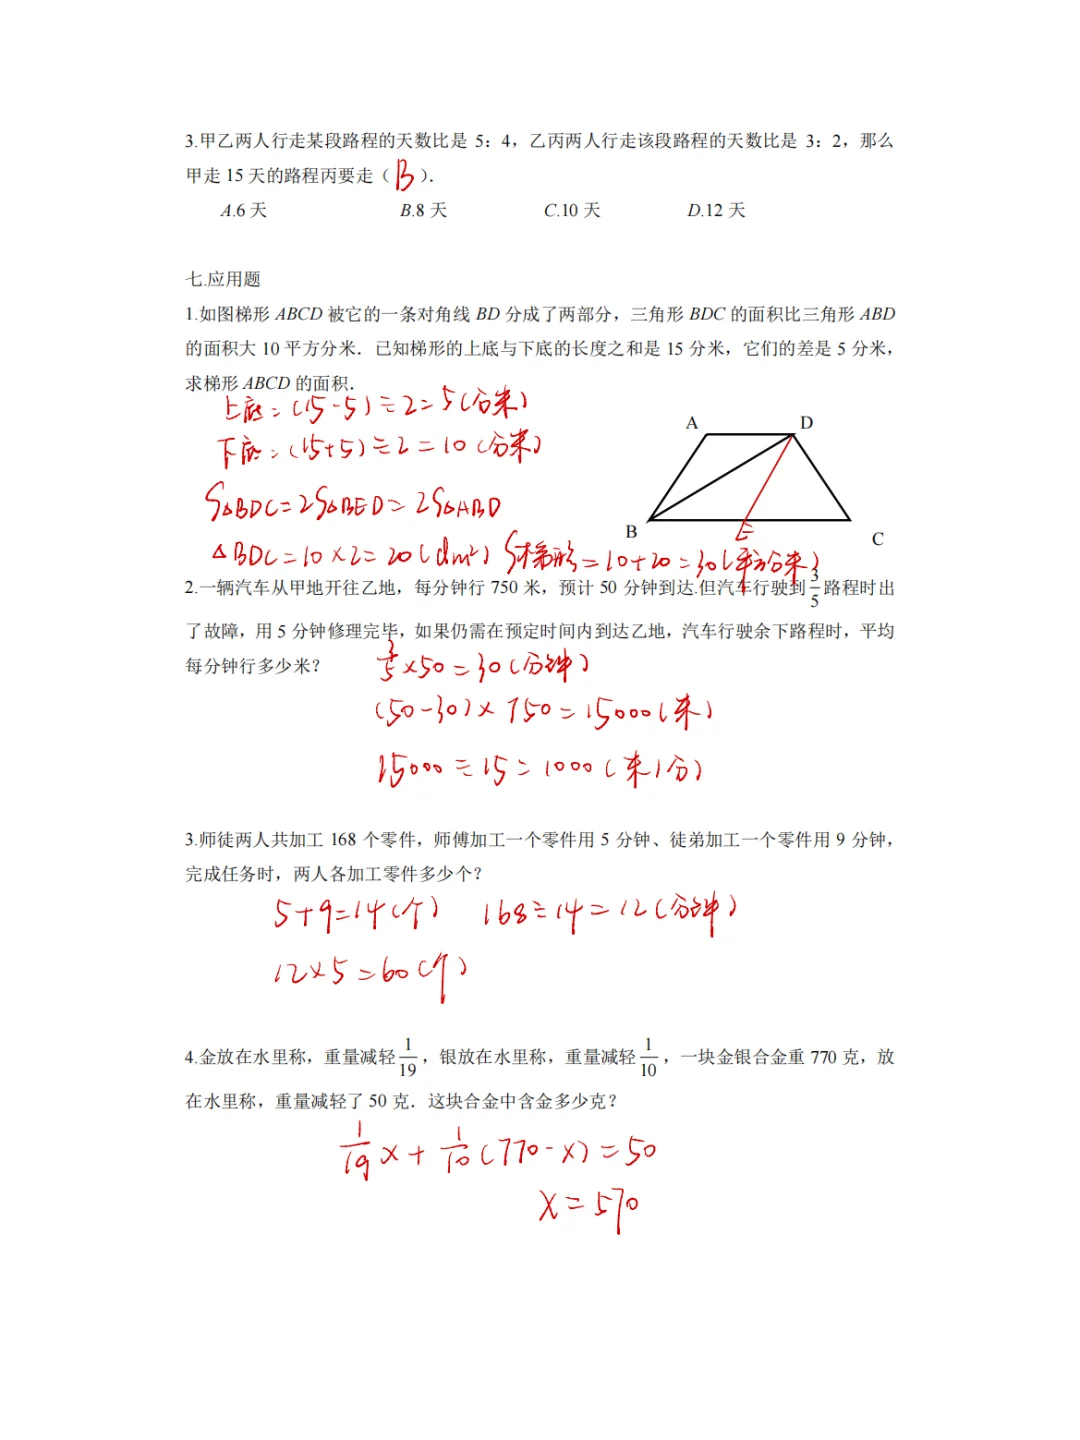 3.甲乙两人行走某段路程的天数比是 5：4，乙丙两人行走该段路程的天数比是 3：2，那么
甲走 15 天的路程丙要走（ B ）.
A.6 天 B.8 天 C.10 天 D.12 天
七.应用题
1.如图梯形 ABCD 被它的一条对角线 BD 分成了两部分，三角形 BDC 的面积比三角形 ABD
的面积大 10 平方分米．已知梯形的上底与下底的长度之和是 15 分米，它们的差是 5 分米，
求梯形 ABCD 的面积．
上底：(15-5)÷2=5(分米)
下底：(15+5)÷2=10(分米)
A D
S△BDC=2S△BED=2S△ABD
B E C
△BDC=10×2=20(dm²) S梯形=10+20=30(平方分米)
2.一辆汽车从甲地开往乙地，每分钟行 750 米，预计 50 分钟到达.但汽车行驶到 3/5 路程时出
了故障，用 5 分钟修理完毕，如果仍需在预定时间内到达乙地，汽车行驶余下路程时，平均
每分钟行多少米？
3/5×50=30(分钟)
(50-30)×750=15000(米)
15000÷15=1000(米/分)
3.师徒两人共加工 168 个零件，师傅加工一个零件用 5 分钟、徒弟加工一个零件用 9 分钟，
完成任务时，两人各加工零件多少个？
5+9=14(个) 168÷14=12(分钟)
12×5=60(个)
4.金放在水里称，重量减轻 1/19，银放在水里称，重量减轻 1/10，一块金银合金重 770 克，放
在水里称，重量减轻了 50 克．这块合金中含金多少克？
1/19x+1/10(770-x)=50
x=570